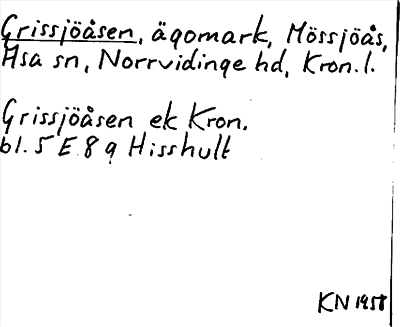 Grissjöåsen, ägomark, Mössjöås,
Asa sn, Norrvidinge hd, Kron.l.
Grissjöåsen ek Kron.
bl. 5 E 8 q Hisshult
KN 1958